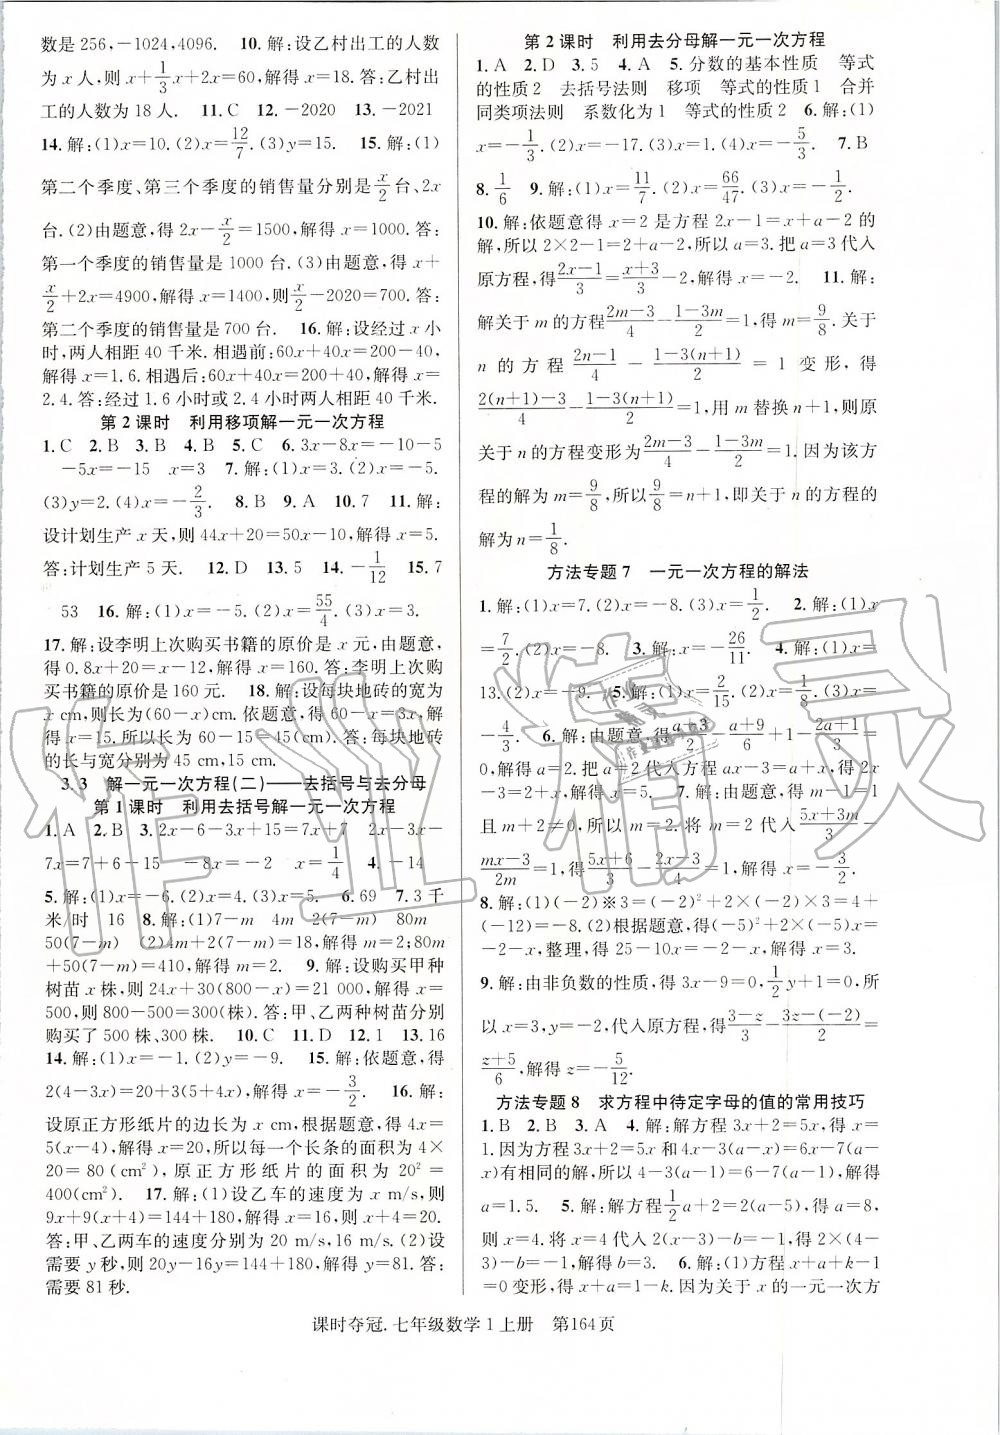 数是 256,-1024,4096. 10.解:设乙村出工的人数
为 x 人,则 x+1/3x+2x=60,解得 x=18.答:乙村出
工的人数为 18 人. 11.C 12.-2020 13.-2021
14.解:(1)x=10.(2)x=12/7.(3)y=15. 15.解:(1)
第二个季度、第三个季度的销售量分别是x/2台、2x
台.(2)由题意,得 2x-x/2=1500,解得 x=1000.答:
第一个季度的销售量是 1000 台.(3)由题意,得 x+
x/2+2x=4900,解得 x=1400,则x/2-2020=700.答:
第二个季度的销售量是 700 台. 16.解:设经过 x 小
时,两人相距 40 千米.相遇前:60x+40x=200-40,
解得 x=1.6.相遇后:60x+40x=200+40,解得 x=
2.4.答:经过 1.6 小时或 2.4 小时两人相距 40 千米.
第 2 课时 利用移项解一元一次方程
1.C 2.B 3.B 4.B 5.C 6.3x-8x=-10-5
-5x=-15 x=3 7.解:(1)x=3.(2)x=-5.
(3)y=2.(4)x=-2/3. 8.B 9.A 10.7 11.解:
设计划生产 x 天,则 44x+20=50x-10,解得 x=5.
答:计划生产 5 天. 12.D 13.5 14.-1/12 15.7
53 16.解:(1)x=-5.(2)x=55/4.(3)x=-3.
17.解:设李明上次购买书籍的原价是 x 元,由题意,
得 0.8x+20=x-12,解得 x=160.答:李明上次购
买书籍的原价是 160 元. 18.解:设每块地砖的宽为
x cm,则长为(60-x)cm.依题意,得 60-x=3x,解
得 x=15.所以长为 60-15=45(cm).答:每块地砖
的长与宽分别为 45 cm,15 cm.
3.3 解一元一次方程(二)——去括号与去分母
第 1 课时 利用去括号解一元一次方程
1.A 2.B 3.2x-6-3x+15=7x+7 2x-3x-
7x=7+6-15 -8x=-2 x=1/4 4.-14
5.解:(1)x=-6.(2)x=4.(3)x=5. 6.69 7.3千
米/时 16 8.解:(1)7-m 4m 2(7-m) 80m
50(7-m) (2)4m+2(7-m)=18,解得 m=2;80m
+50(7-m)=410,解得 m=2. 9.解:设购买甲种
树苗 x 株,得 24x+30(800-x)=21 000,解得 x=
500,则 800-500=300(株).答:甲、乙两种树苗分别
购买了 500 株、300 株. 10.C 11.D 12.1 13.16
14.解:(1)x=-1.(2)y=-9. 15.解:依题意,得
2(4-3x)=20+3(5+4x),解得 x=-3/2. 16.解:
设原正方形纸片的边长为 x cm,由题意,得 4x=
5(x-4),解得 x=20,所以每一个长条的面积为 4×
20=80(cm²),原正方形纸片的面积为 20²=
400(cm²). 17.解:(1)设乙车的速度为 x m/s,则
9x+9(x+4)=144+180,解得 x=16,则 x+4=20.
答:甲、乙两车的速度分别为 20 m/s,16 m/s.(2)设
需要 y秒,则 20y-16y=144+180,解得 y=81.答:
需要 81 秒.
第 2 课时 利用去分母解一元一次方程
1.A 2.D 3.5 4.A 5.分数的基本性质 等式
的性质 2 去括号法则 移项 等式的性质 1 合并
同类项法则 系数化为 1 等式的性质 2 6.解:(1)
x=-1/3.(2)x=-17.(3)x=1.(4)x=-5/3. 7.B
8.1/6 9.解:(1)x=11/7.(2)x=66/47.(3)x=-1/2.
10.解:依题意得 x=2 是方程 2x-1=x+a-2 的
解,所以 2×2-1=2+a-2,所以 a=3.把 a=3代入
原方程,得(2x-1)/3=(x+3)/3-2,解得 x=-2. 11.解:
解关于 m 的方程(2m-3)/4-(1-3m)/2=1,得 m=9/8.关于
n 的方程 (2n-1)/4 - (1-3(n+1))/2 = 1 变形,得
(2(n+1)-3)/4-(1-3(n+1))/2=1,用 m 替换 n+1,则原
关于 n的方程变形为(2m-3)/4-(1-3m)/2=1.因为该方
程的解为 m=9/8,所以9/8=n+1,即关于 n 的方程的
解为 n=1/8.
方法专题 7 一元一次方程的解法
1.解:(1)x=7.(2)x=-8.(3)x=1/2. 2.解:(1)x
=7/2.(2)x=-8. 3.解:x=-26/11. 4.解:(1)x=
13.(2)x=-9. 5.解:(1)x=2/15.(2)x=1/8.(3)x=
-4/3. 6.解:由题意,得(a+3)/2-(a+9)/6+1=2a-
1,解得 a=2. 7.解:由题意,得 m-1=1
且 m+2≠0,所以 m=2.将 m=2 代入(5x+3m)/3-
(mx-3)/2m=1,得(5x+6)/3-(2x-3)/4=1,解得 x=-3/2.
8.解:(1)(-2)※3=(-2)²+2×(-2)×3=4+
(-12)=-8.(2)根据题意,得(-5)²+2×(-5)x=
-2-x,整理,得 25-10x=-2-x,解得 x=3.
9.解:由非负数的性质,得 3x-9=0,1/2y+1=0,所
以 x=3,y=-2,代入原方程,得(3-z)/3-(3-(-2))/2=
(z+5)/6,解得 z=-5/12.
方法专题 8 求方程中待定字母的值的常用技巧
1.B 2.B 3.A 4.解:解方程 3x+2=5x,得 x=
1.因为方程 3x+2=5x 和 4-3x(a-x)=6x-7(a-
x)有相同的解,所以 4-3(a-1)=6-7(a-1),解得
a=1.5. 5.解:解方程1/2a+2=2(a-5),得 a=8,所
以 x=4.将 x=4 代入,得 2(x-3)-b=7,得 2×(4-
3)-b=7,解得 b=3. 6.解:(1-a)x-(k+1)
=0变形,得 x=1-k.因为关于 x 的一元一次方
课时夺冠.七年级数学 1 上册 第164页